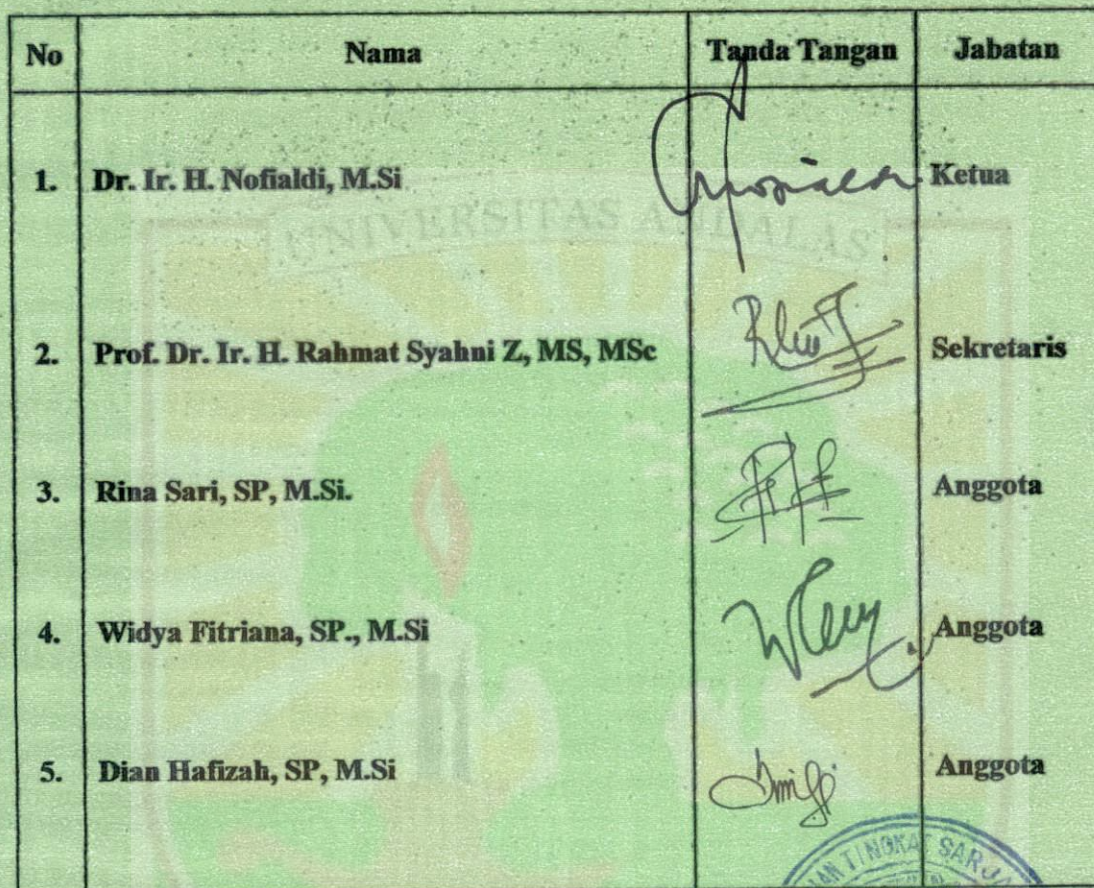 No Nama Tanda Tangan Jabatan
1. Dr. Ir. H. Nofialdi, M.Si Ketua
UNIVERSITAS ANDALAS
2. Prof. Dr. Ir. H. Rahmat Syahni Z, MS, MSc Sekretaris
3. Rina Sari, SP, M.Si. Anggota
4. Widya Fitriana, SP., M.Si Anggota
5. Dian Hafizah, SP, M.Si Anggota
TINGKAT